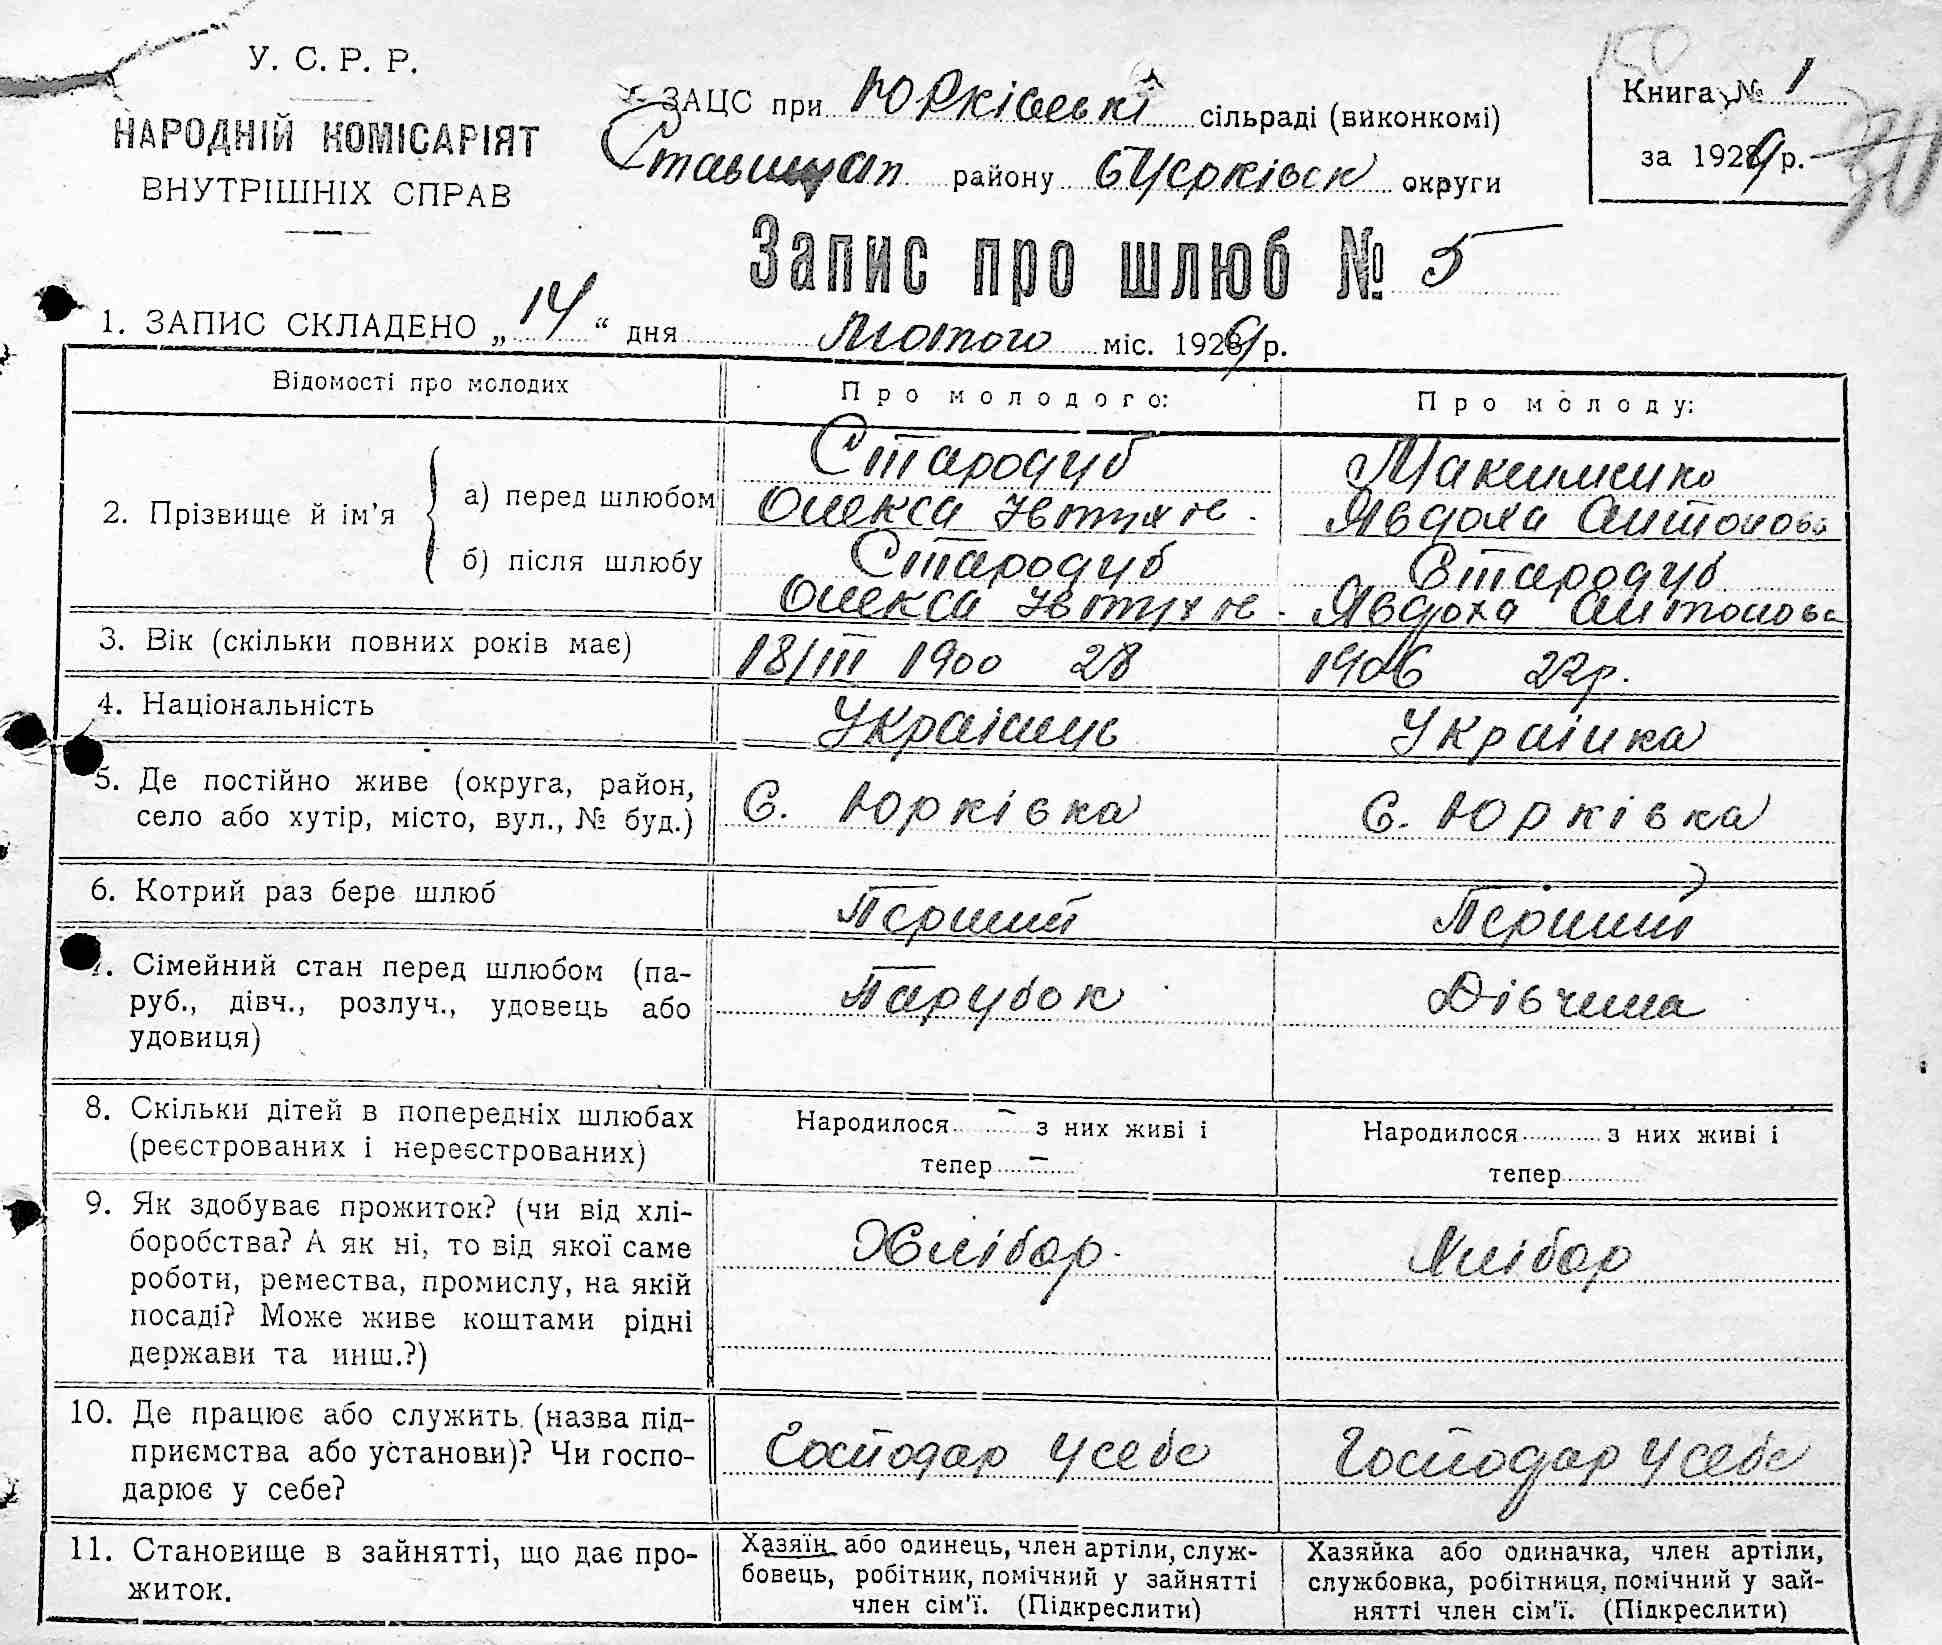 У. С. Р. Р.
НАРОДНІЙ КОМІСАРІЯТ
ВНУТРІШНІХ СПРАВ
ЗАЦС при Юрківські сільраді (виконкомі)
району округи
Книга № 1
за 1929 р.
Запис про шлюб № 5
1. ЗАПИС СКЛАДЕНО „ 14 “ дня Лютого міс. 1929 р.
Відомості про молодих
Про молодого:
Про молоду:
2. Прізвище й ім'я
а) перед шлюбом
Стародуб
Олекса
Максименко
Явдоха Антонова
б) після шлюбу
Стародуб
Олекса
Стародуб
Явдоха Антонова
3. Вік (скільки повних років має)
18/III 1900 28
1906 22р.
4. Національність
Українець
Українка
5. Де постійно живе (округа, район,
село або хутір, місто, вул., № буд.)
С. Юрківка
С. Юрківка
6. Котрий раз бере шлюб
Перший
Перший
7. Сімейний стан перед шлюбом (па-
руб., дівч., розлуч., удовець або
удовиця)
Парубок
Дівчина
8. Скільки дітей в попередніх шлюбах
(реєстрованих і нереєстрованих)
Народилося – з них живі і
тепер –
Народилося з них живі і
тепер
9. Як здобуває прожиток? (чи від хлі-
боробства? А як ні, то від якої саме
роботи, ремества, промислу, на якій
посаді? Може живе коштами рідні
держави та инш.?)
Хлібор.
Хлібор
10. Де працює або служить (назва під-
приємства або установи)? Чи госпо-
дарює у себе?
Господар у себе
Господар у себе
11. Становище в зайнятті, що дає про-
житок.
Хазяїн або одинець, член артіли, служ-
бовець, робітник, помічний у зайнятті
член сім'ї. (Підкреслити)
Хазяйка або одиначка, член артіли,
службовка, робітниця, помічний у зай-
нятті член сім'ї. (Підкреслити)